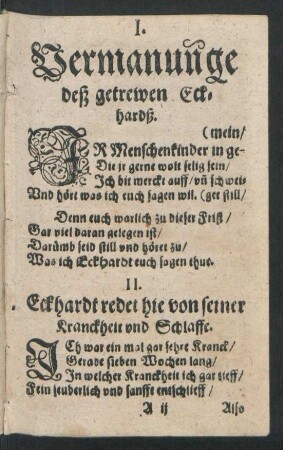 I.
Vermanunge
deß getrewen Eck⸗
hardß.
(mein/
IR Menschenkinder in ge⸗
Die jr gerne wolt selig sein/
Ich bit merckt auff/ vñ schwei⸗
Vnd hört was ich euch sagen wil. (get still/
Denn euch warlich zu dieser Frist/
Gar viel daran gelegen ist/
Darümb seid still vnd höret zu/
Was ich Eckhardt euch sagen thue.
II.
Eckhardt redet hie von seiner
Kranckheit vnd Schlaffe.
ICh war ein mal gar sehre Kranck/
Gerade sieben Wochen lang/
In welcher Kranckheit ich gar tieff/
Fein seuberlich vnd sanfft entschlieff/
A ij Also